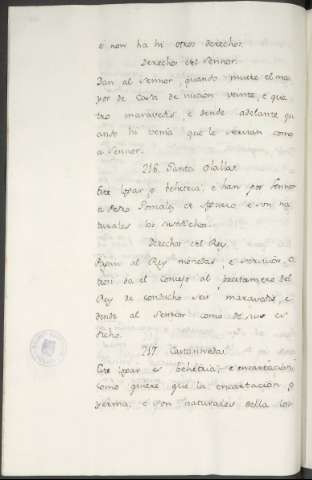 e non ha hi otros derechos.
Derechos del Sennor.
Dan al Sennor, quando muere el ma
yor de Casa de nucion veinte, e qua
tro maravedis, e dende adelante qu
ando hi venia que le servian como
a Sennor.
216. Santa Olalla.
Este logar es behetria, e han por Sennor
a Pedro e son na
turales los susodichos.
Derechos del Rey.
Pagan al Rey monedas, e servicios, o
trosi da el Concejo al prestamero del
Rey de conducho seis maravedis, e
dende al Sennor como de suso es
dicho.
217.
Este logar es behetria, e encartacion
como quiere que la encartacion, es
yerma, e son naturales della los